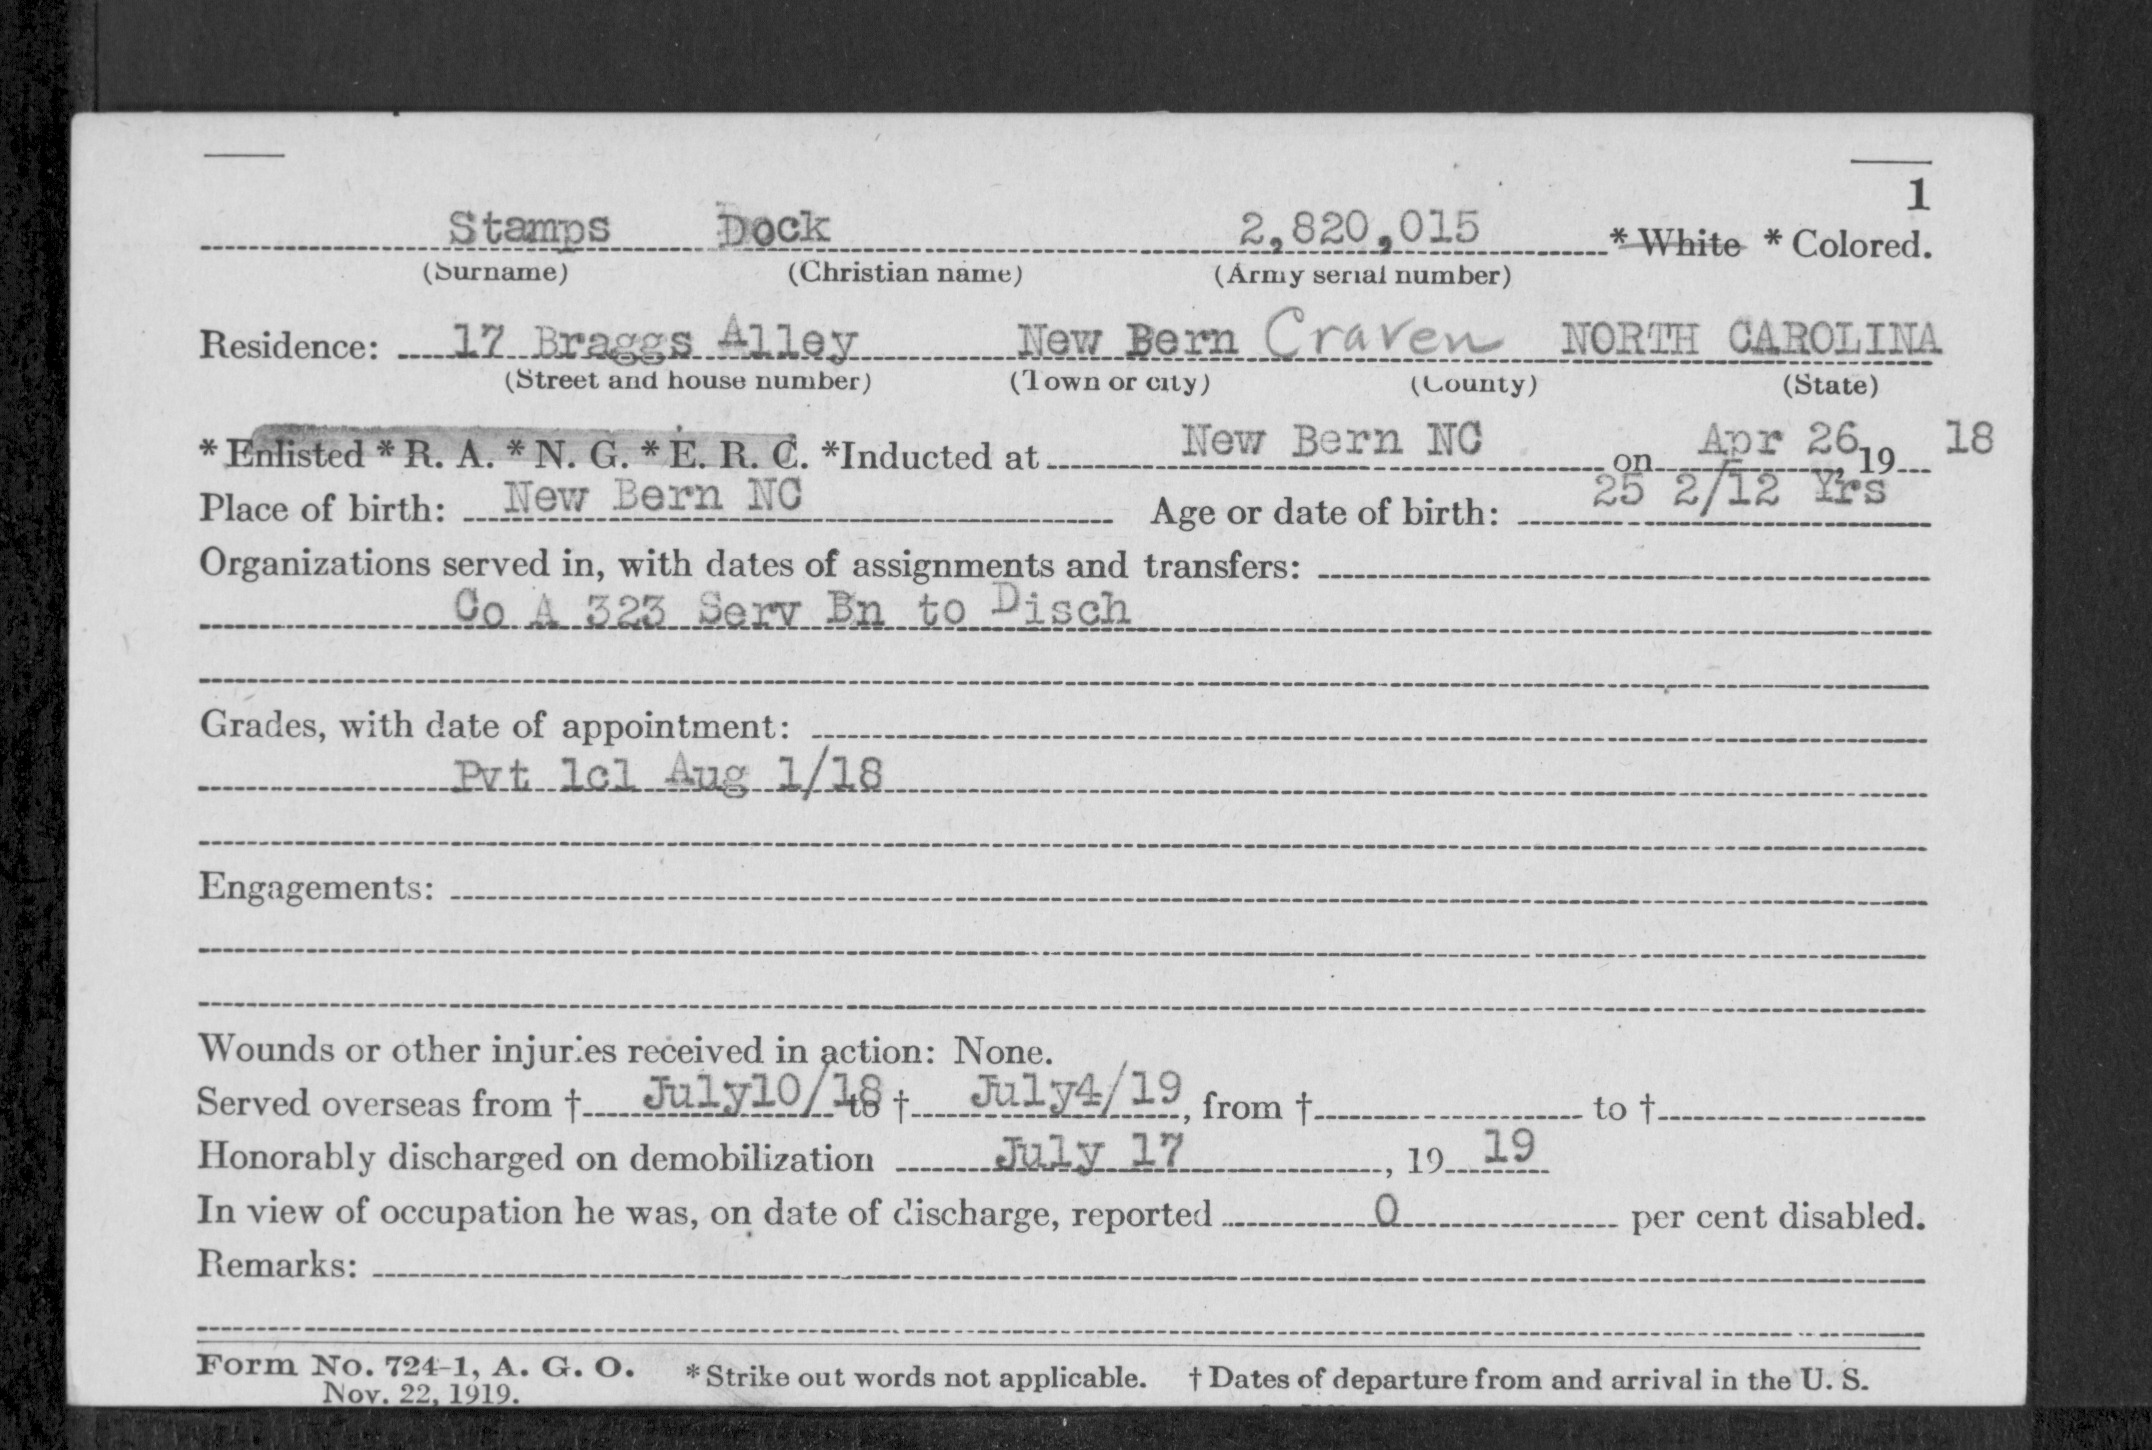 1
Stamps Dock 2,820,015 * White * Colored.
(Surname) (Christian name) (Army serial number)
Residence: 17 Braggs Alley New Bern Craven NORTH CAROLINA
(Street and house number) (Town or city) (County) (State)
* Enlisted * R. A. * N. G. * E. R. C. *Inducted at New Bern NC on Apr 26, 19 18
Place of birth: New Bern NC Age or date of birth: 25 2/12 Yrs
Organizations served in, with dates of assignments and transfers:
Co A 323 Serv Bn to Disch
Grades, with date of appointment:
Pvt 1cl Aug 1/18
Engagements:
Wounds or other injuries received in action: None.
Served overseas from † July10/18 to † July4/19, from † to †
Honorably discharged on demobilization July 17, 19 19
In view of occupation he was, on date of discharge, reported 0 per cent disabled.
Remarks:
Form No. 724-1, A. G. O. * Strike out words not applicable. † Dates of departure from and arrival in the U. S.
Nov. 22, 1919.